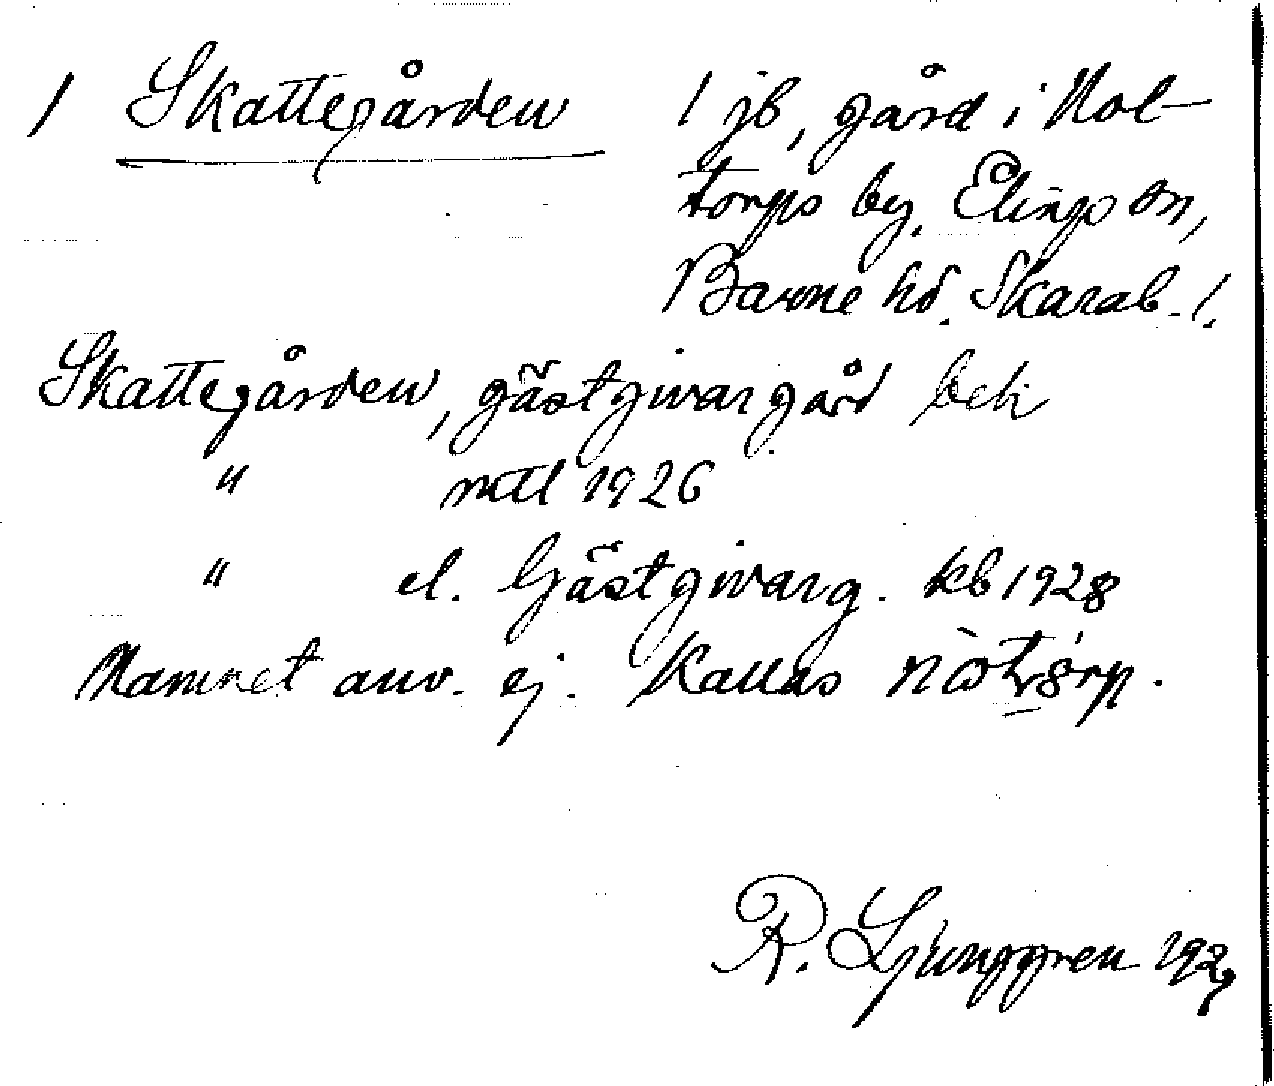 1 Skattegården 1 jb, gård i Not-
torps by, Elings sn,
Barne hd. Skarab. l.
Skattegården, gästgivargård bek
" mtl 1926
" el. Gästgivarg. kb 1928
Namnet anv. ej. Kallas
R. Ljunggren 1929